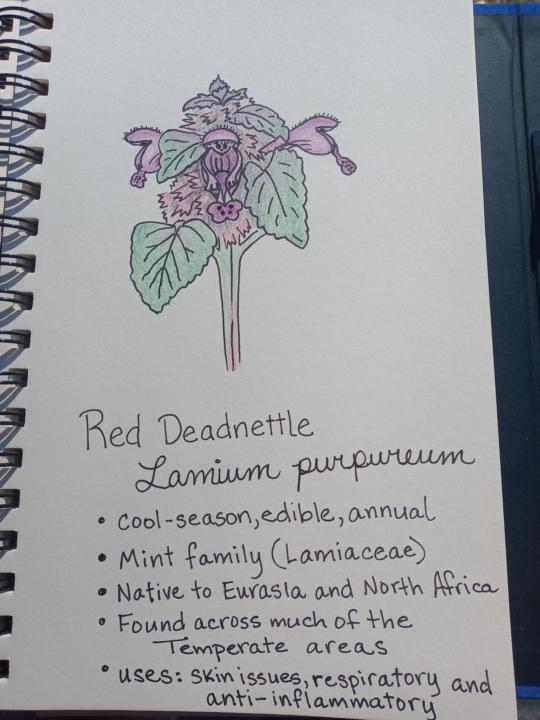 Red Deadnettle
Lamium purpureum
• cool-season, edible, annual
• Mint family (Lamiaceae)
• Native to Eurasia and North Africa
• Found across much of the
Temperate areas
• uses: skin issues, respiratory and
anti-inflammatory